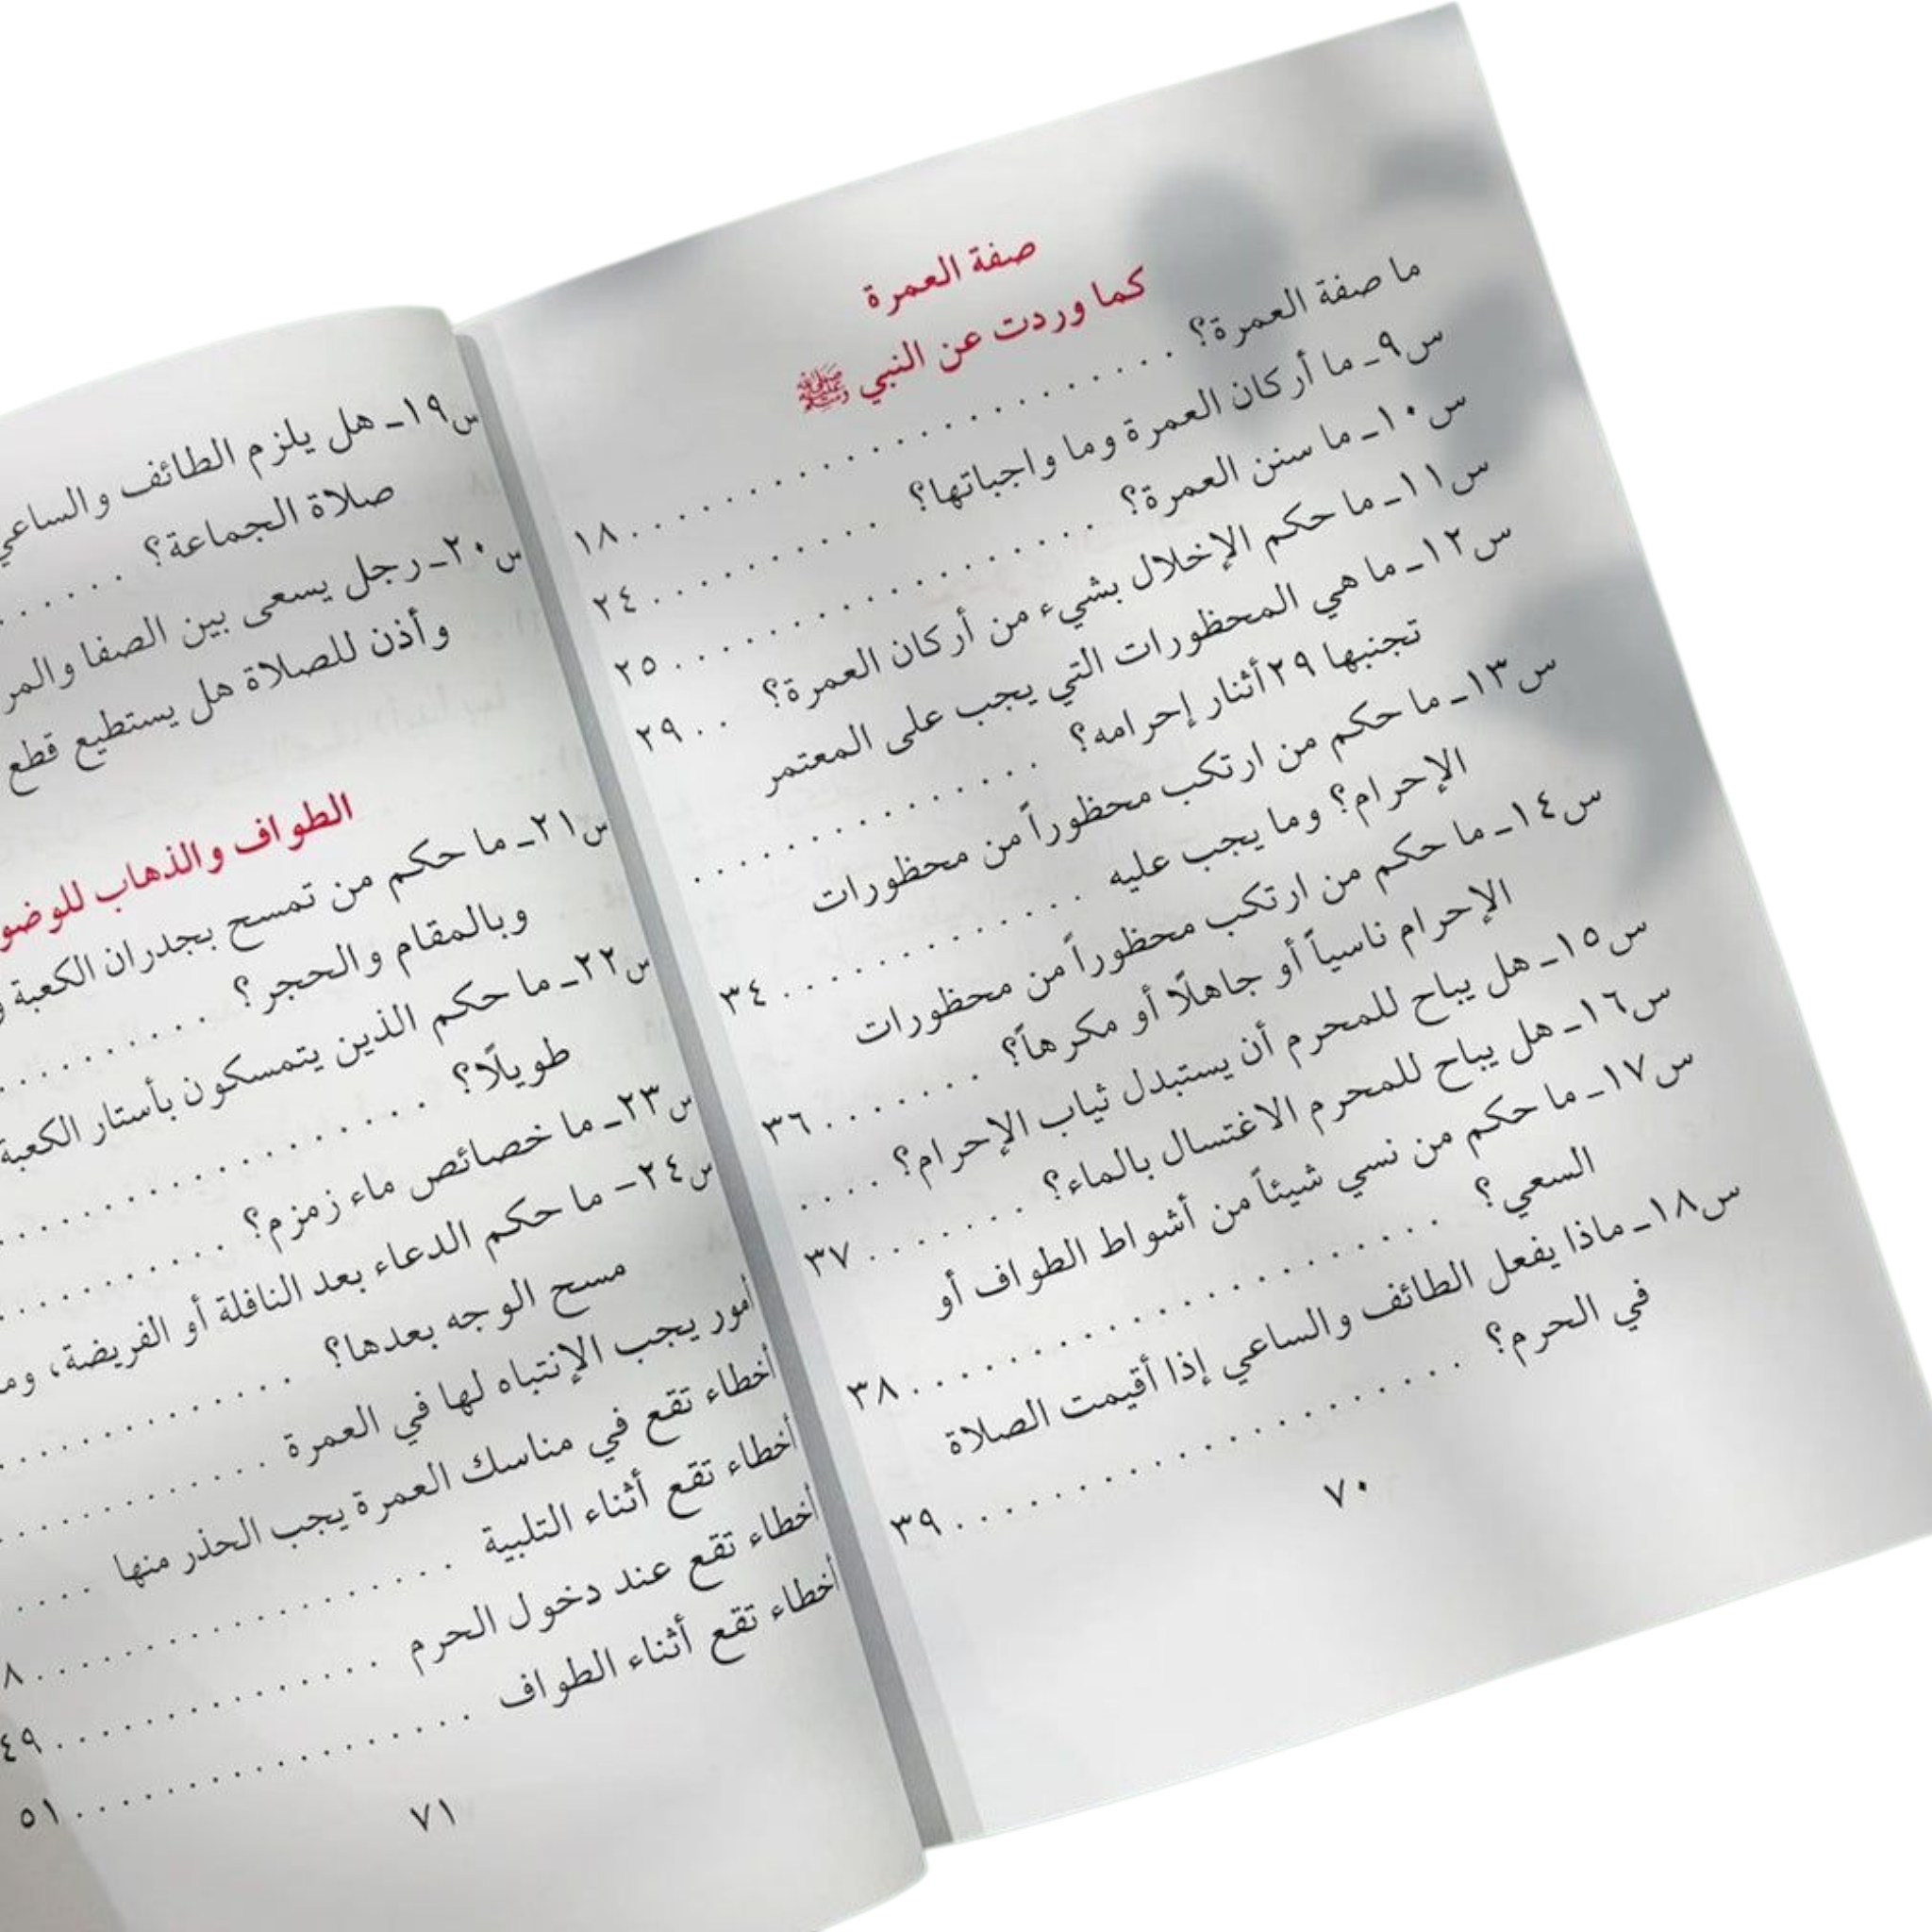 صفة العمرة
كما وردت عن النبي ﷺ
ما صفة العمرة؟ . . . . . . . . . . . . . . . . . . . . . . . ١٨
س٩ـ ما أركان العمرة وما واجباتها؟ . . . . . . . . . . ٢٤
س١٠ـ ما سنن العمرة؟ . . . . . . . . . . . . . . . . . . ٢٥
س١١ـ ما حكم الإخلال بشيء من أركان العمرة؟ . . ٢٩
س١٢ـ ما هي المحظورات التي يجب على المعتمر
تجنبها ٢٩ أثنار إحرامه؟ . . . . . . . . . . . . . . .
س١٣ـ ما حكم من ارتكب محظوراً من محظورات
الإحرام؟ وما يجب عليه . . . . . . . . . . . . . ٣٤
س١٤ـ ما حكم من ارتكب محظوراً من محظورات
الإحرام ناسياً أو جاهلًا أو مكرهاً؟ . . . . . . . ٣٦
س١٥ـ هل يباح للمحرم أن يستبدل ثياب الإحرام؟ . . . .
س١٦ـ هل يباح للمحرم الاغتسال بالماء؟ . . . . . . . ٣٧
س١٧ـ ما حكم من نسي شيئاً من أشواط الطواف أو
السعي؟ . . . . . . . . . . . . . . . . . . . . . . ٣٨
س١٨ـ ماذا يفعل الطائف والساعي إذا أقيمت الصلاة
في الحرم؟ . . . . . . . . . . . . . . . . . . . . . ٣٩
٧٠
س١٩ـ هل يلزم الطائف والساعي
صلاة الجماعة؟ . . . . . .
س٢٠ـ رجل يسعى بين الصفا والمر
وأذن للصلاة هل يستطيع قطع
الطواف والذهاب للوضو
س٢١ـ ما حكم من تمسح بجدران الكعبة
وبالمقام والحجر؟ . . . . . . . . .
س٢٢ـ ما حكم الذين يتمسكون بأستار الكعبة
طويلًا؟ . . . . . . . . . . . . . . . . .
س٢٣ـ ما خصائص ماء زمزم؟ . . . . . . . . .
س٢٤ـ ما حكم الدعاء بعد النافلة أو الفريضة، وما
مسح الوجه بعدها؟ . . . . . . . . . . . .
أمور يجب الإنتباه لها في العمرة . . . . . . . . . . .
أخطاء تقع في مناسك العمرة يجب الحذر منها . . . .
أخطاء تقع أثناء التلبية . . . . . . . . . . . . . . . . . ٨
أخطاء تقع عند دخول الحرم . . . . . . . . . . . . . . ٤٩
أخطاء تقع أثناء الطواف . . . . . . . . . . . . . . . . . ٥١
٧١